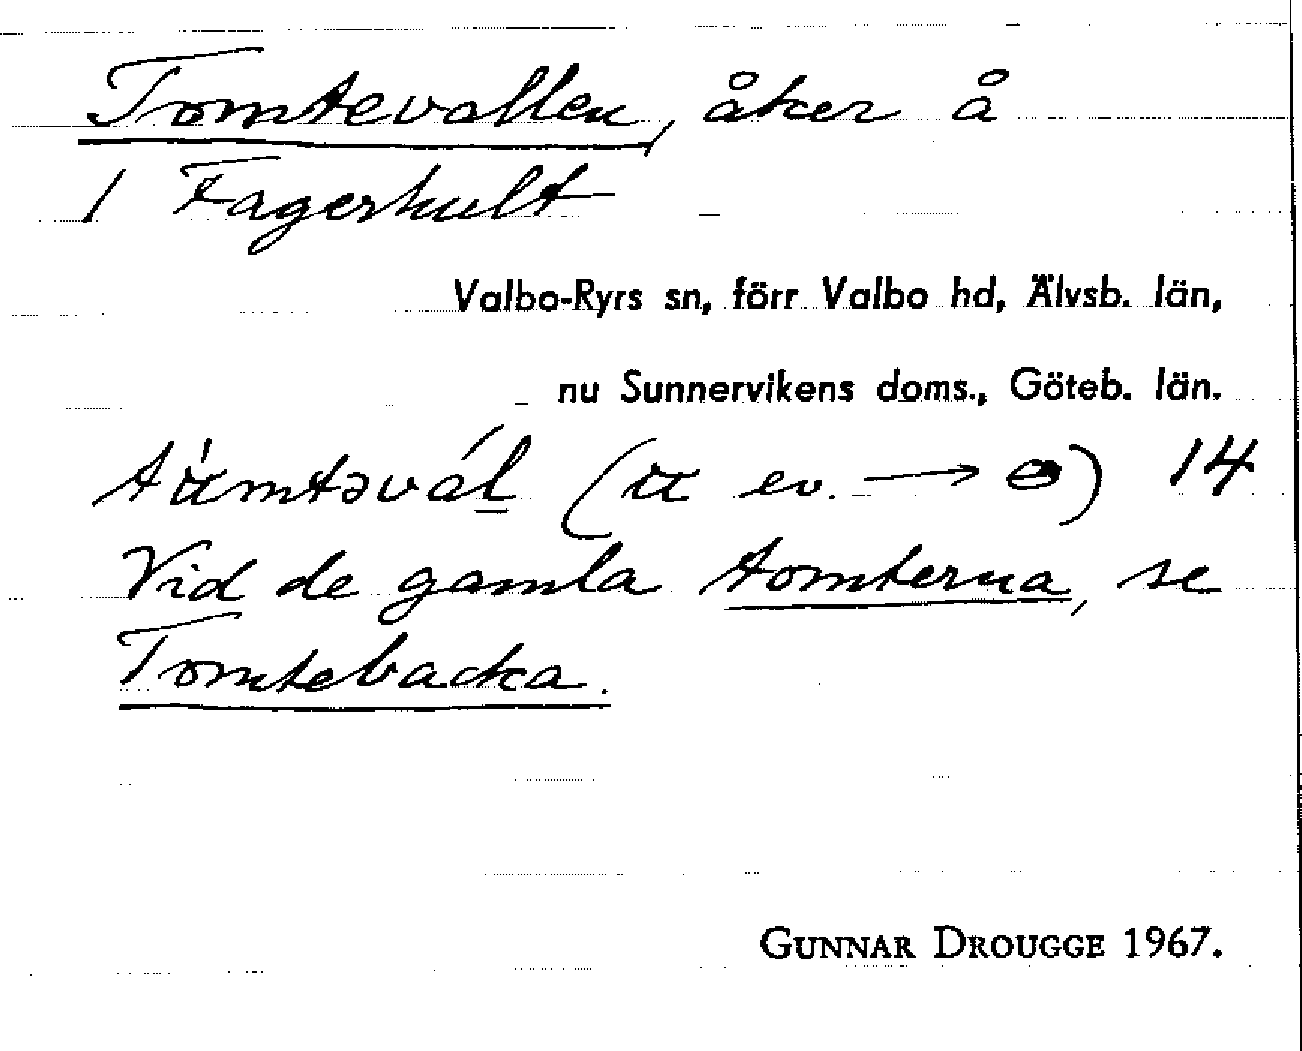 Tomtevallen, åker å
1 Fagerhult
Valbo-Ryrs sn, förr Valbo hd, Älvsb. län,
nu Sunnervikens doms., Göteb. län.
( ev. → ) 14
Vid de gamla tomterna, se
Tomtebacka.
GUNNAR DROUGGE 1967.